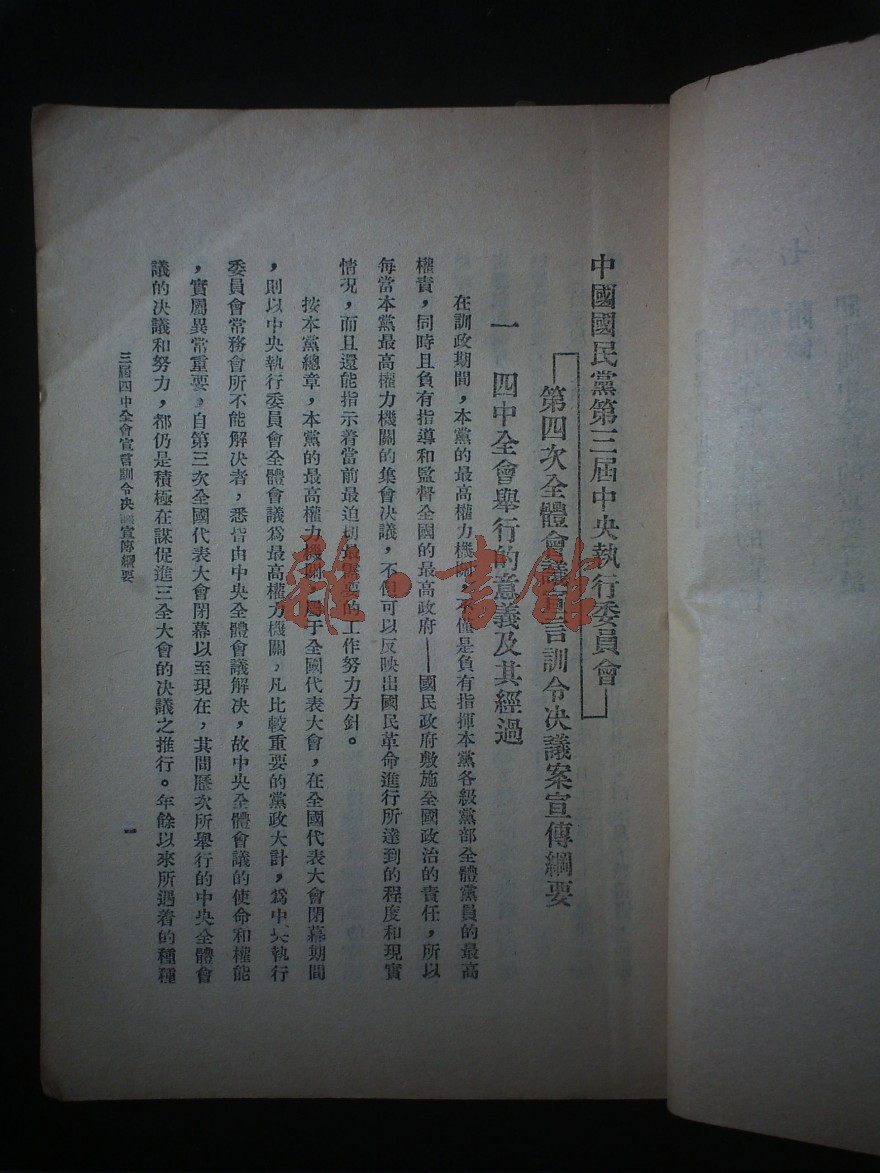 中國國民黨第三屆中央執行委員會
第四次全體會議宣言訓令决議案宣傳綱要
一 四中全會舉行的意義及其經過
在訓政期間，本黨的最高權力機關，不僅是負有指揮本黨各級黨部全體黨員的最高
權責，同時且負有指導和監督全國的最高政府——國民政府敷施全國政治的責任，所以
每當本黨最高權力機關的集會决議，不僅可以反映出國民革命進行所達到的程度和現實
情況，而且還能指示着當前最迫切最需要的工作努力方針。
按本黨總章，本黨的最高權力機關，屬于全國代表大會，在全國代表大會閉幕期間
，則以中央執行委員會全體會議爲最高權力機關，凡比較重要的黨政大計，爲中央執行
委員會常務會所不能解决者，悉皆由中央全體會議解决，故中央全體會議的使命和權能
，實屬異常重要，自第三次全國代表大會閉幕以至現在，其間歷次所舉行的中央全體會
議的决議和努力，都仍是積極在謀促進三全大會的决議之推行。年餘以來所遇着的種種
三屆四中全會宣言訓令决議宣傳綱要
一
雜·書館